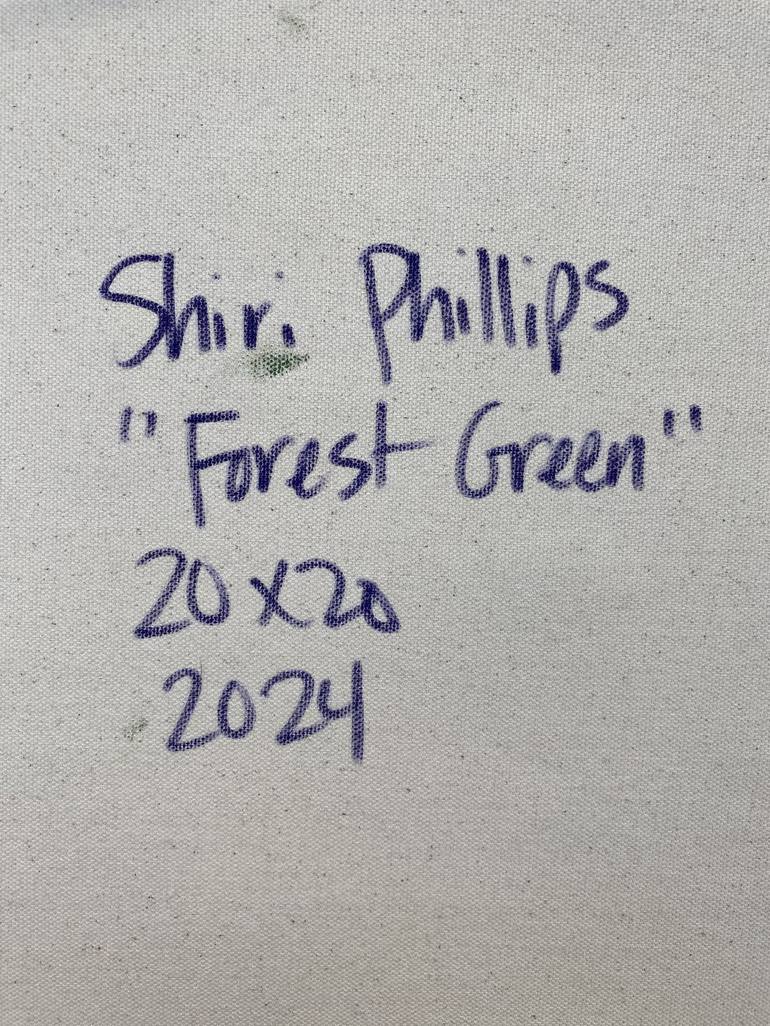 Shiri Phillips
"Forest Green"
20x20
2024